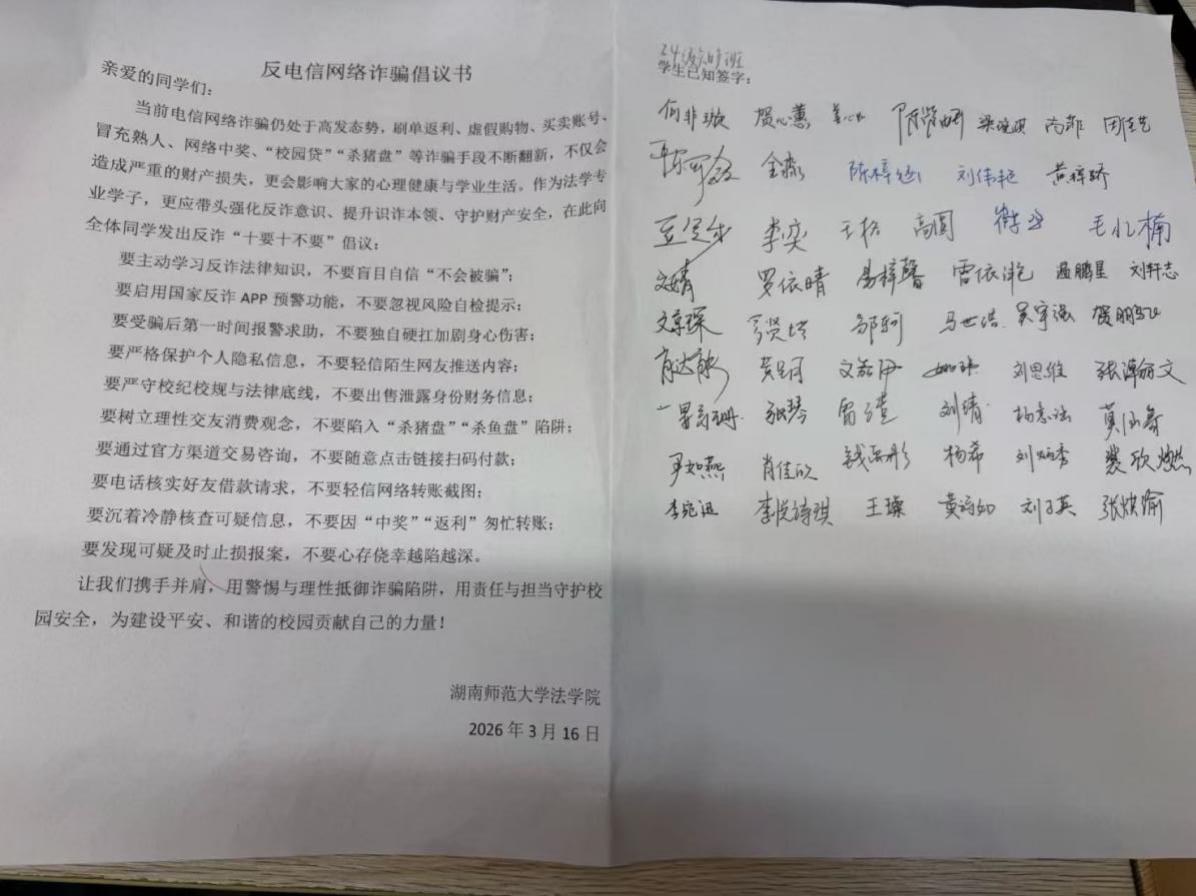 反电信网络诈骗倡议书
亲爱的同学们：
当前电信网络诈骗仍处于高发态势，刷单返利、虚假购物、买卖账号、
冒充熟人、网络中奖、“校园贷”“杀猪盘”等诈骗手段不断翻新，不仅会
造成严重的财产损失，更会影响大家的心理健康与学业生活。作为法学专
业学子，更应带头强化反诈意识、提升识诈本领、守护财产安全，在此向
全体同学发出反诈“十要十不要”倡议：
要主动学习反诈法律知识，不要盲目自信“不会被骗”；
要启用国家反诈 APP 预警功能，不要忽视风险自检提示；
要受骗后第一时间报警求助，不要独自硬扛加剧身心伤害；
要严格保护个人隐私信息，不要轻信陌生网友推送内容；
要严守校纪校规与法律底线，不要出售泄露身份财务信息；
要树立理性交友消费观念，不要陷入“杀猪盘”“杀鱼盘”陷阱；
要通过官方渠道交易咨询，不要随意点击链接扫码付款；
要电话核实好友借款请求，不要轻信网络转账截图；
要沉着冷静核查可疑信息，不要因“中奖”“返利”匆忙转账；
要发现可疑及时止损报案，不要心存侥幸越陷越深。
让我们携手并肩，用警惕与理性抵御诈骗陷阱，用责任与担当守护校
园安全，为建设平安、和谐的校园贡献自己的力量！
湖南师范大学法学院
2026 年 3 月 16 日
学生已知签字：
何非璇 贺心蕙
陈梓涵 刘伟艳 黄梓娇
李奕 高圆 毛忆楠
文婧 罗依晴 易梓馨 雷依滟 温鹏星 刘轩志
邹轲 马世浩 吴宇强
刘思维
张琴 刘倩
尹如燕 肖佳欣 杨希 刘炳秀 裴欣燃
李悦诗琪 王璨 黄诗如 刘子英 张焕瑜